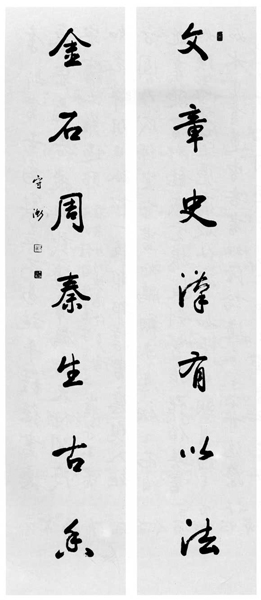 文章史漢有以法
金石周秦生古香